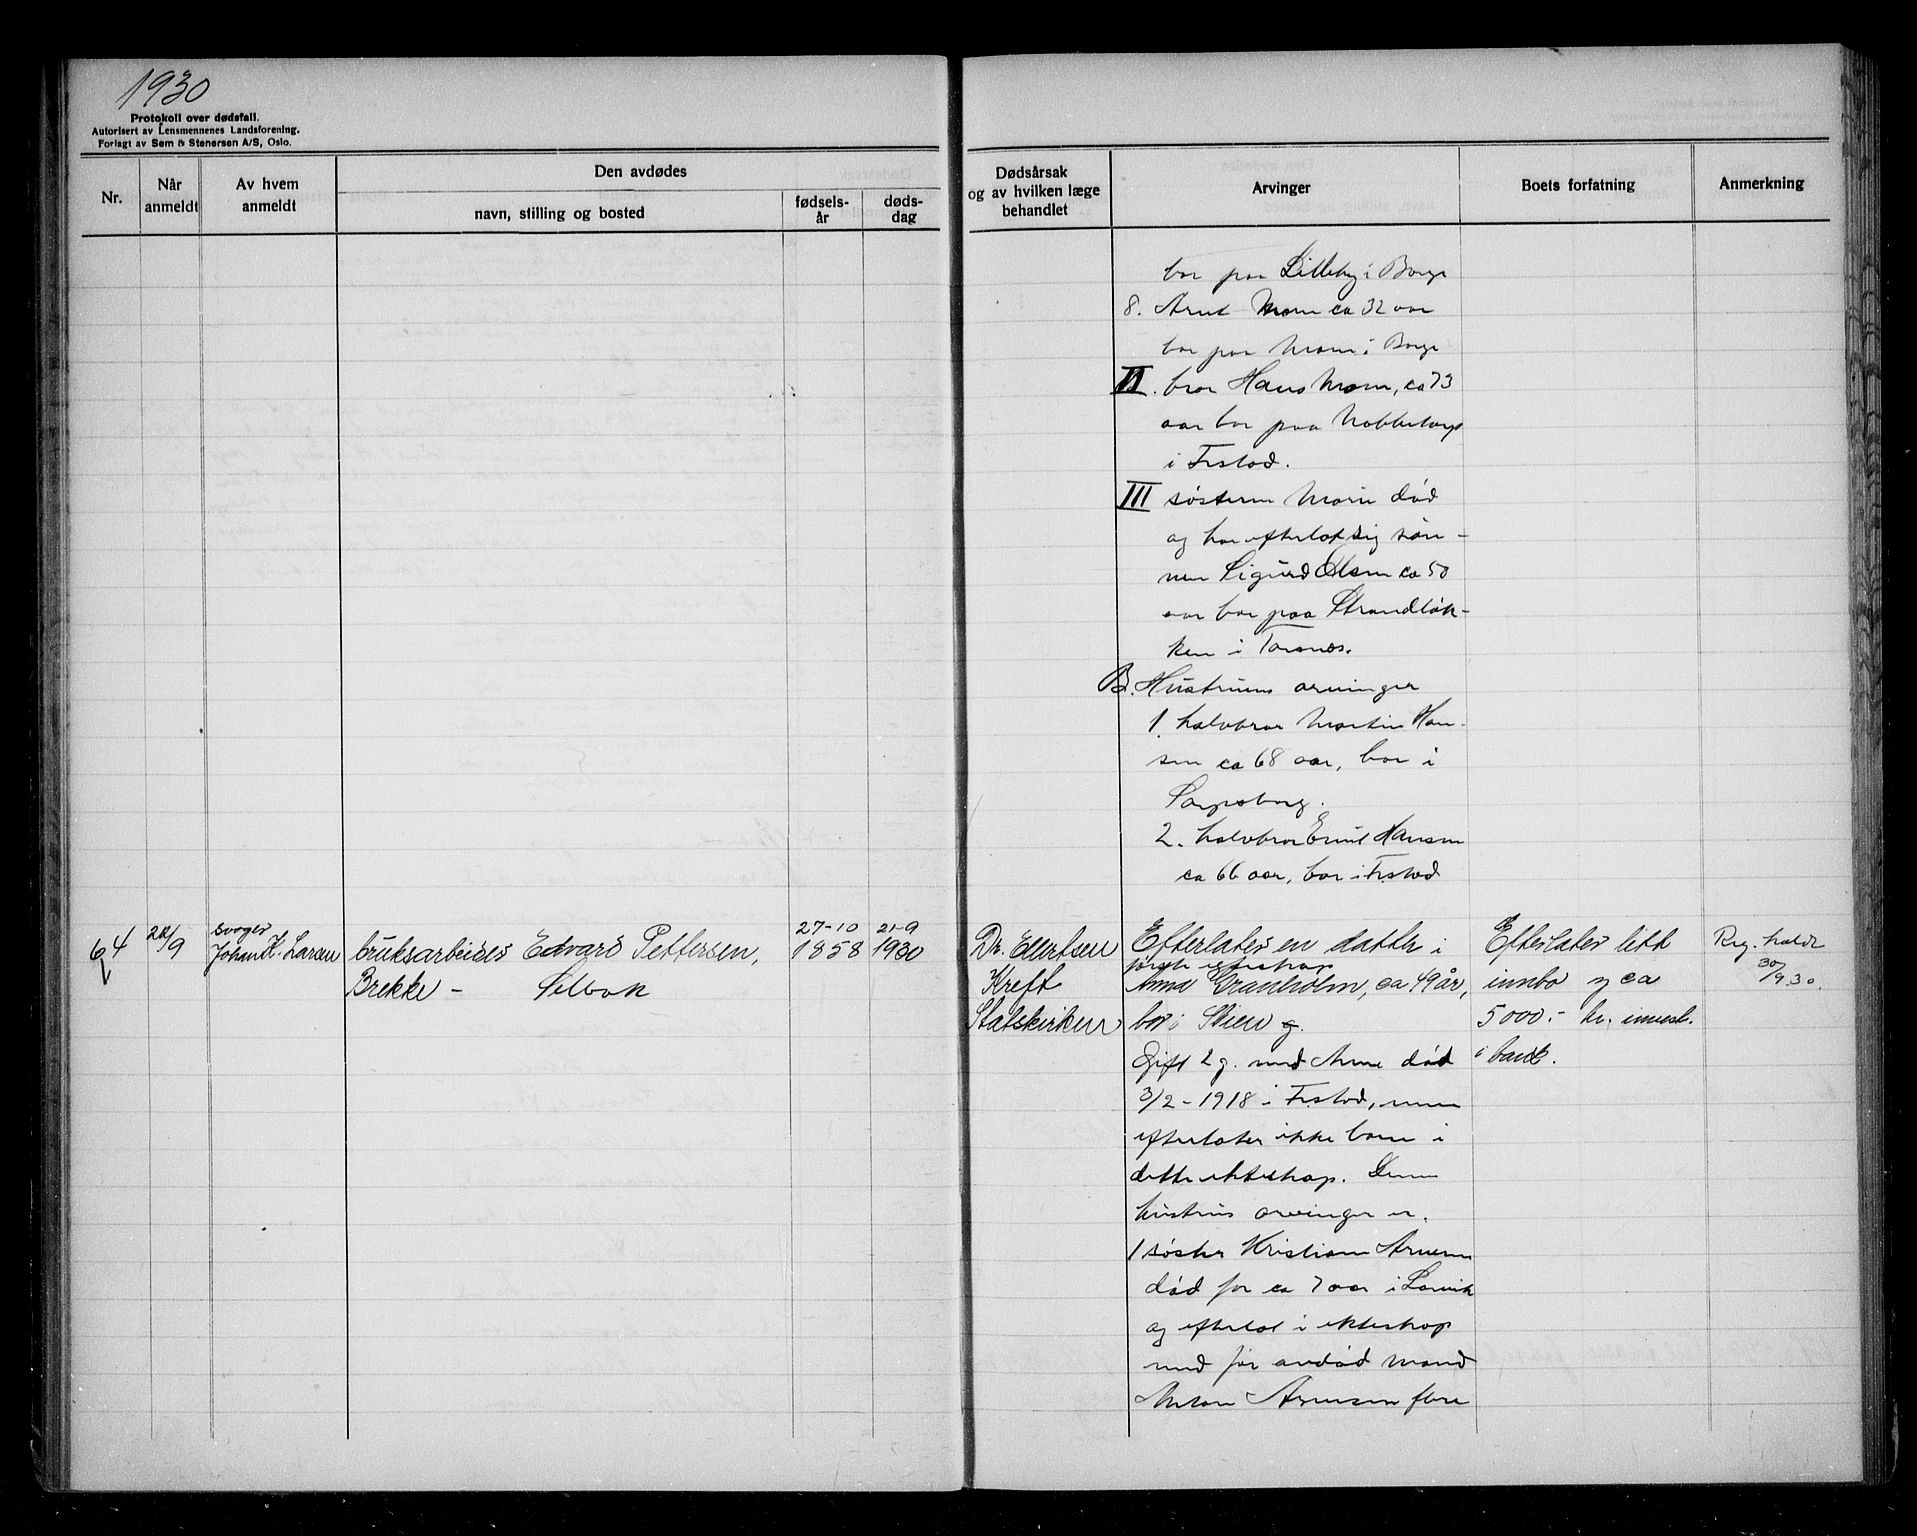 1930
Protokoll over dødsfall.
Autorisert av Lensmennenes Landsforening.
Forlagt av Sem & Stenersen A/S, Oslo.
Nr.
Når anmeldt
Av hvem anmeldt
Den avdødes
navn, stilling og bosted
fødsels-år
døds-dag
Dødsårsak og av hvilken læge behandlet
Arvinger
Boets forfatning
Anmerkning
bor paa Lilleby i Borge
8. Arnt Moum ca 32 aar
bor paa Moum i Borge
II. bror Hans Moum, ca 73
aar bor paa Nabbetorp
i Fr.stad.
III søsteren Marie død
og har efterlat sig søn-
nen Sigurd Olsen ca 50
aar bor paa Strandløk-
ken i Torsnes.
B. Hustruens arvinger
1. halvbror Martin Han-
sen ca 68 aar, bor i
Sarpsborg.
2. halvbror Emil Hansen
ca 66 aar, bor i Fr.stad
64
22/9
svoger
Johan K. Larsen
bruksarbeider Edvard Pettersen,
Brekke - Selbak
27-10
1858
21-9
1930
Dr. Ellertsen
Kreft
Statskirken
Efterlater en datter i
første egteskap
Anna Granholm, ca 49 år,
bor i Skien
Gift 2 g. med Anna død
3/2 - 1918 i Fr.stad, men
efterlater ikke barn i
dette ekteskap. Denne
hustrus arvinger er.
1 søster Kristiane Arnesen
død for ca 7 aar i Larvik
og efterlot i ekteskap
med før avdød mand
Anton Arnesen flere
Efterlater litt
innbo og ca
5000.- kr. innest.
i bank.
Reg. holdt
30/9.30.